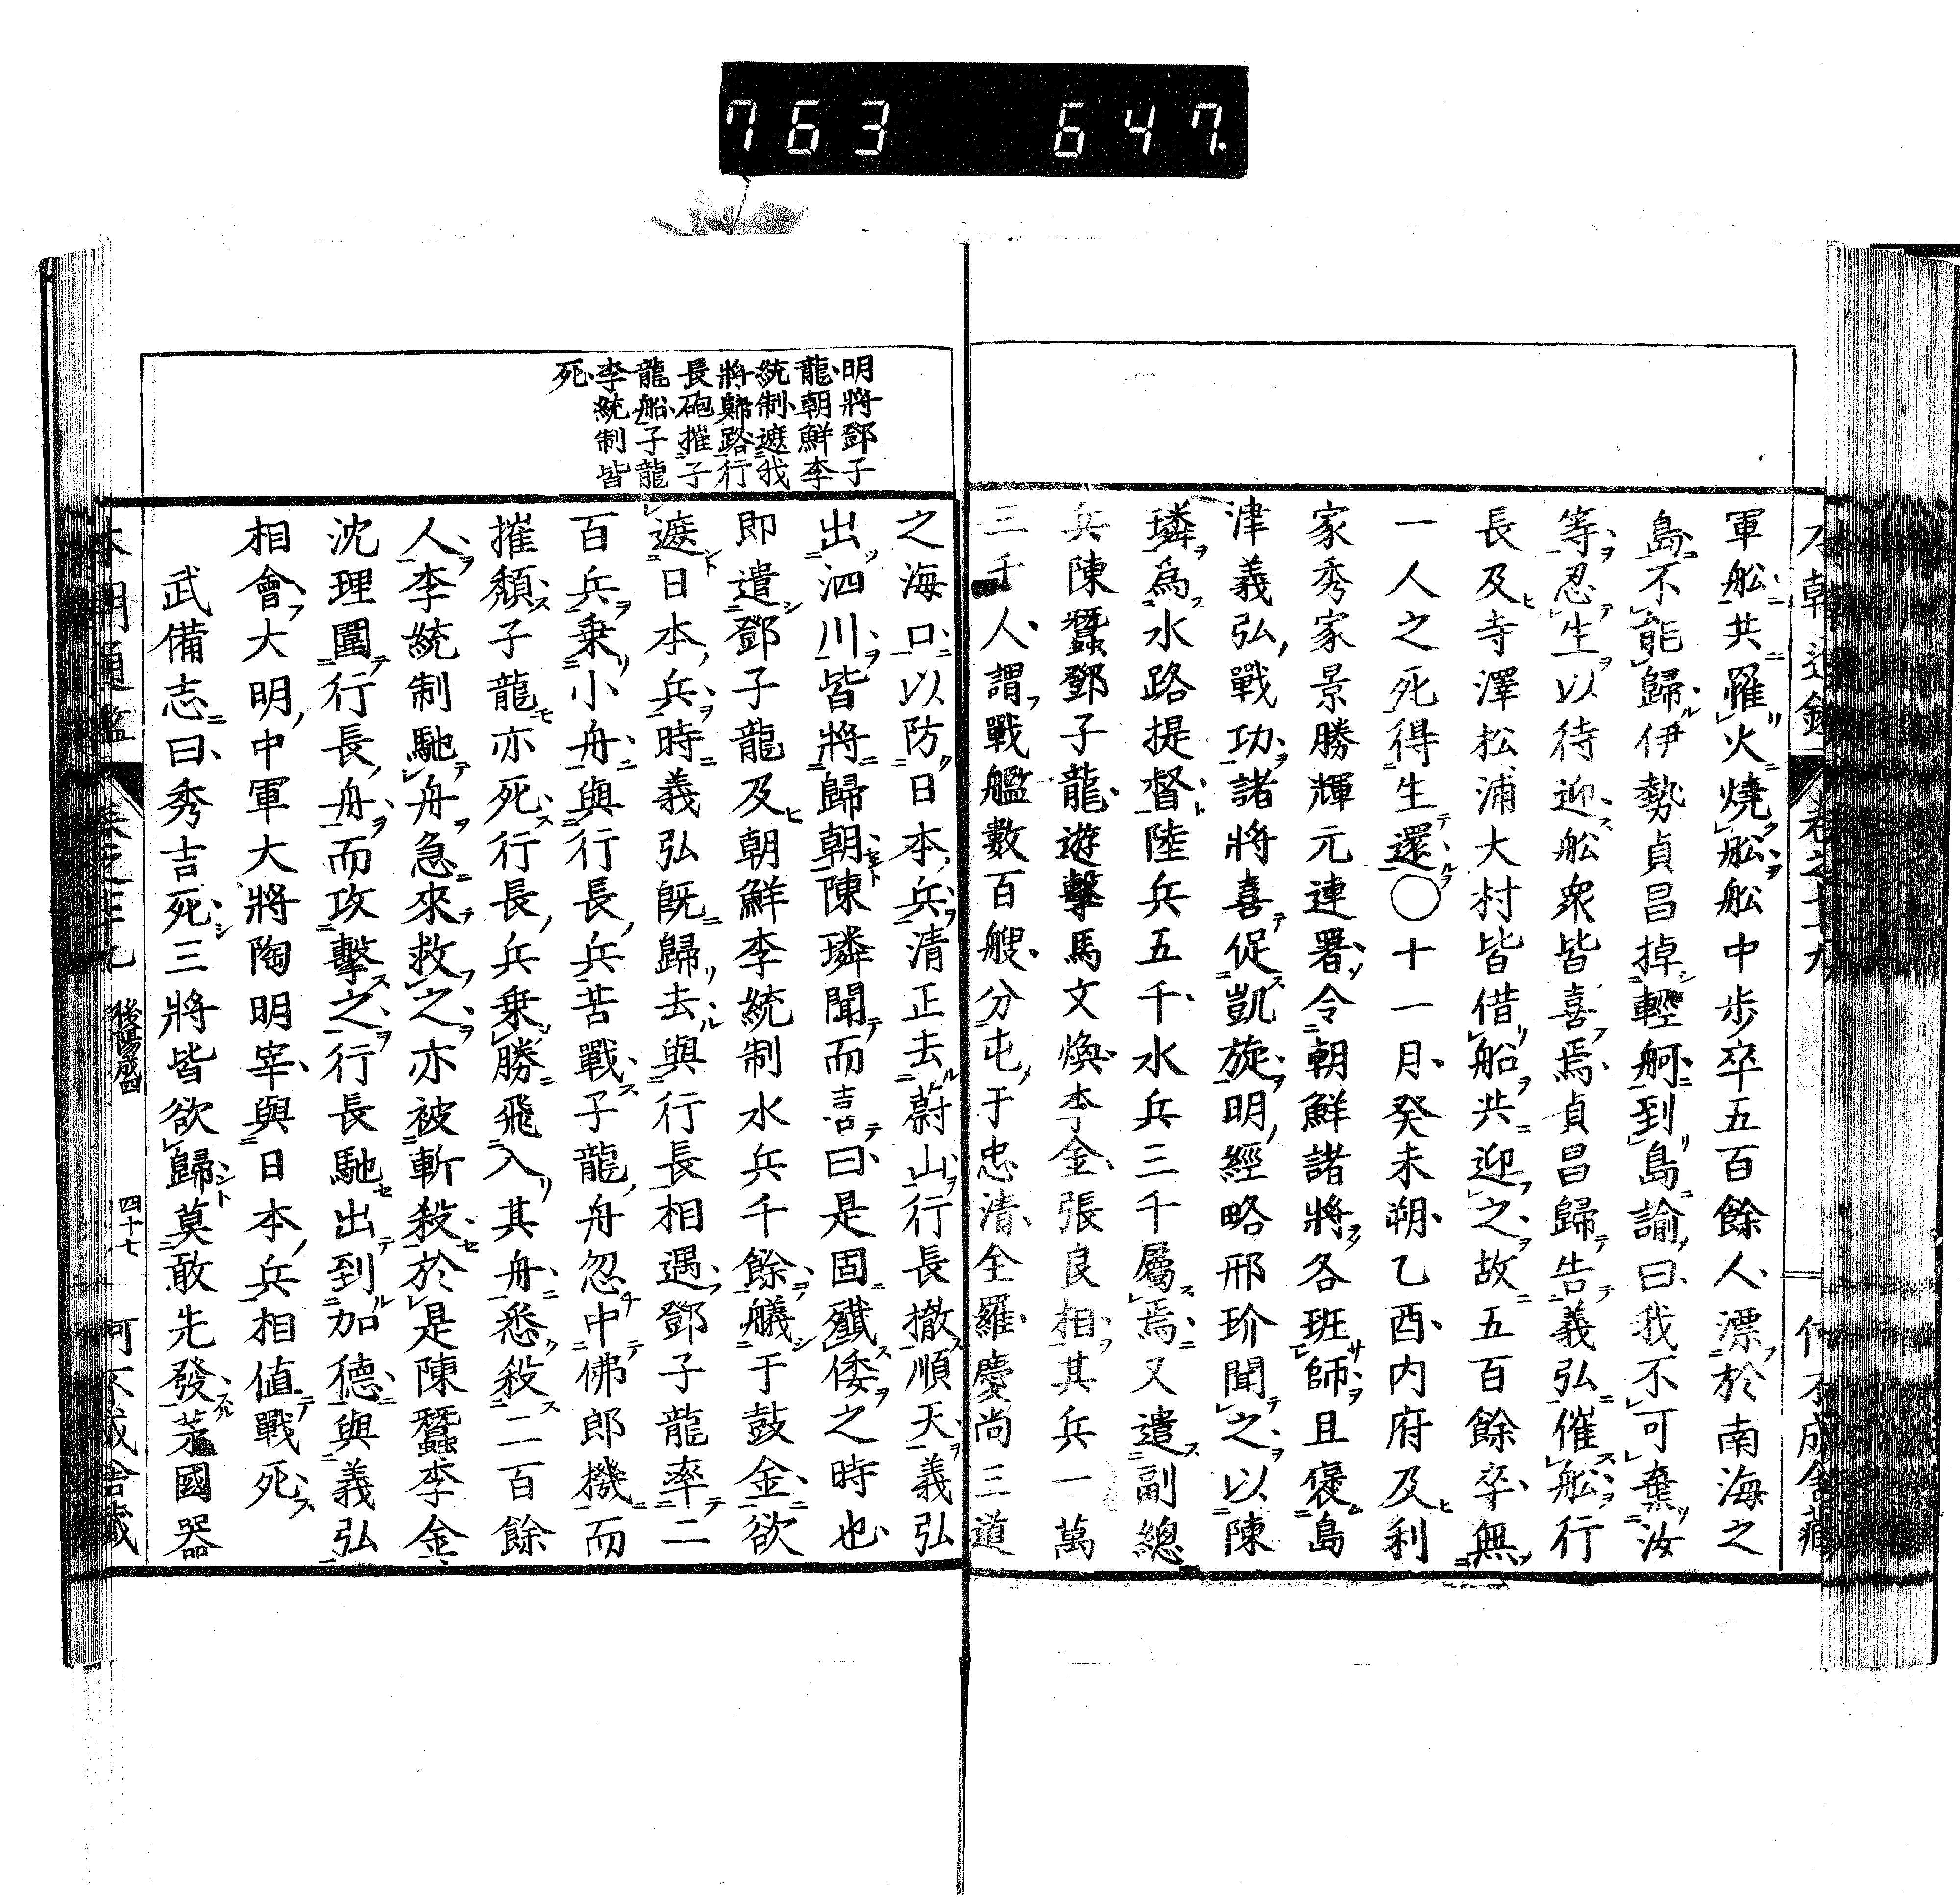 763 647.
軍舩共罹火燒舩舩中歩卒五百餘人漂於南海之
島不能歸伊勢貞昌掉輕舸到島諭曰我不可棄汝
等忍生以待迎舩衆皆喜焉貞昌歸告義弘催舩行
長及寺澤松浦大村皆借船共迎之故五百餘卒無
一人之死得生還〇十一月癸未朔乙酉内府及利
家秀家景勝輝元連署令朝鮮諸將各班師且褒島
津義弘戰功諸將喜促凱旋明經略邢玠聞之以陳
璘爲水路提督陸兵五千水兵三千屬焉又遣副總
兵陳蠶鄧子龍遊擊馬文煥李金張良相其兵一萬
三千人謂戰艦數百艘分屯于忠清全羅慶尚三道
之海口以防日本兵清正去蔚山行長撤順天義弘
出泗川皆將歸朝陳璘聞而喜曰是固殲倭之時也
即遣鄧子龍及朝鮮李統制水兵千餘艤于鼓金欲
遮日本兵時義弘既歸去與行長相遇鄧子龍率二
百兵乗小舟與行長兵苦戰子龍舟忽中佛郎機而
摧頽子龍亦死行長兵乗勝飛入其舟悉殺二百餘
人李統制馳舟急來救之亦被斬殺於是陳蠶李金
沈理圍行長舟而攻擊之行長馳出到加德與義弘
相會大明中軍大將陶明宰與日本兵相値戰死
武備志曰秀吉死三將皆欲歸莫敢先發茅國器
明將鄧子
龍朝鮮李
統制遮我
將歸路行
長砲摧子
龍船子龍
李統制皆
死
後陽成
四十七